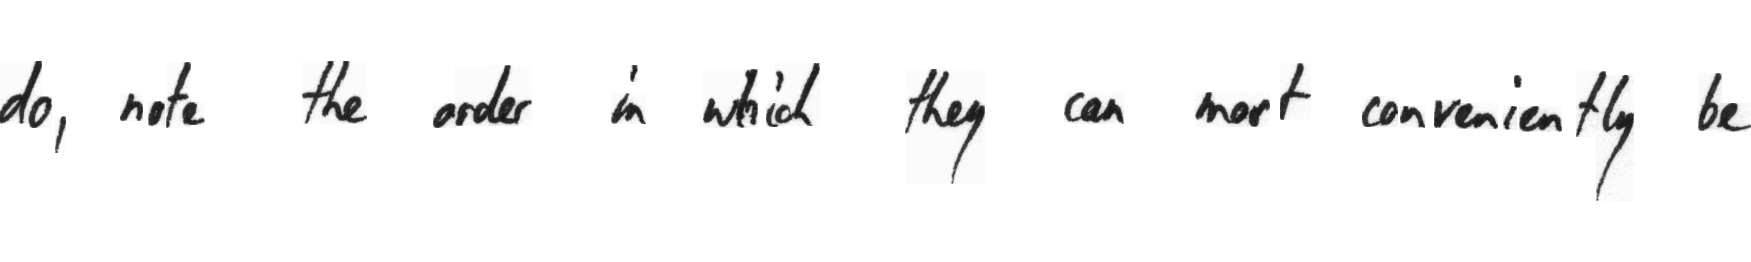 do, note the order in which they can most conveniently be